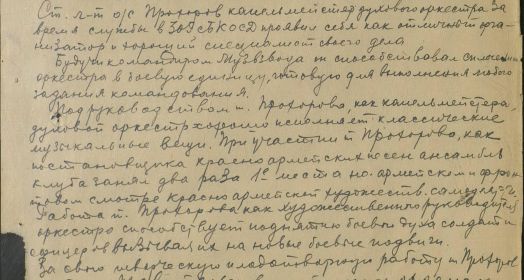 Ст. л-т о/с Прохоров капельмейстер духового оркестра за
время службы в проявил себя как отличный орга-
низатор и хороший специалист своего дела
Будучи командиром Музвзвода он способствовал сплочению
оркестра в боевую единицу, готовую для выполнения любого
задания командования.
Под руководством т. Прохорова, как капельмейстера
духовой оркестр хорошо исполняет классические
музыкальные вещи. При участии т Прохорова, как
постановщика красноармейских песен ансамбль
клуба занял два раза 1е места на армейском и фрон
товом смотре красноармейской художеств. самодеят-
Работа т. Прохорова как художественного руководителя
оркестра способствует поднятию боевого духа солдат и
офицеров вызывая их на новые боевые подвиги.
За свою творческую и плодотворную работу т Прохоров